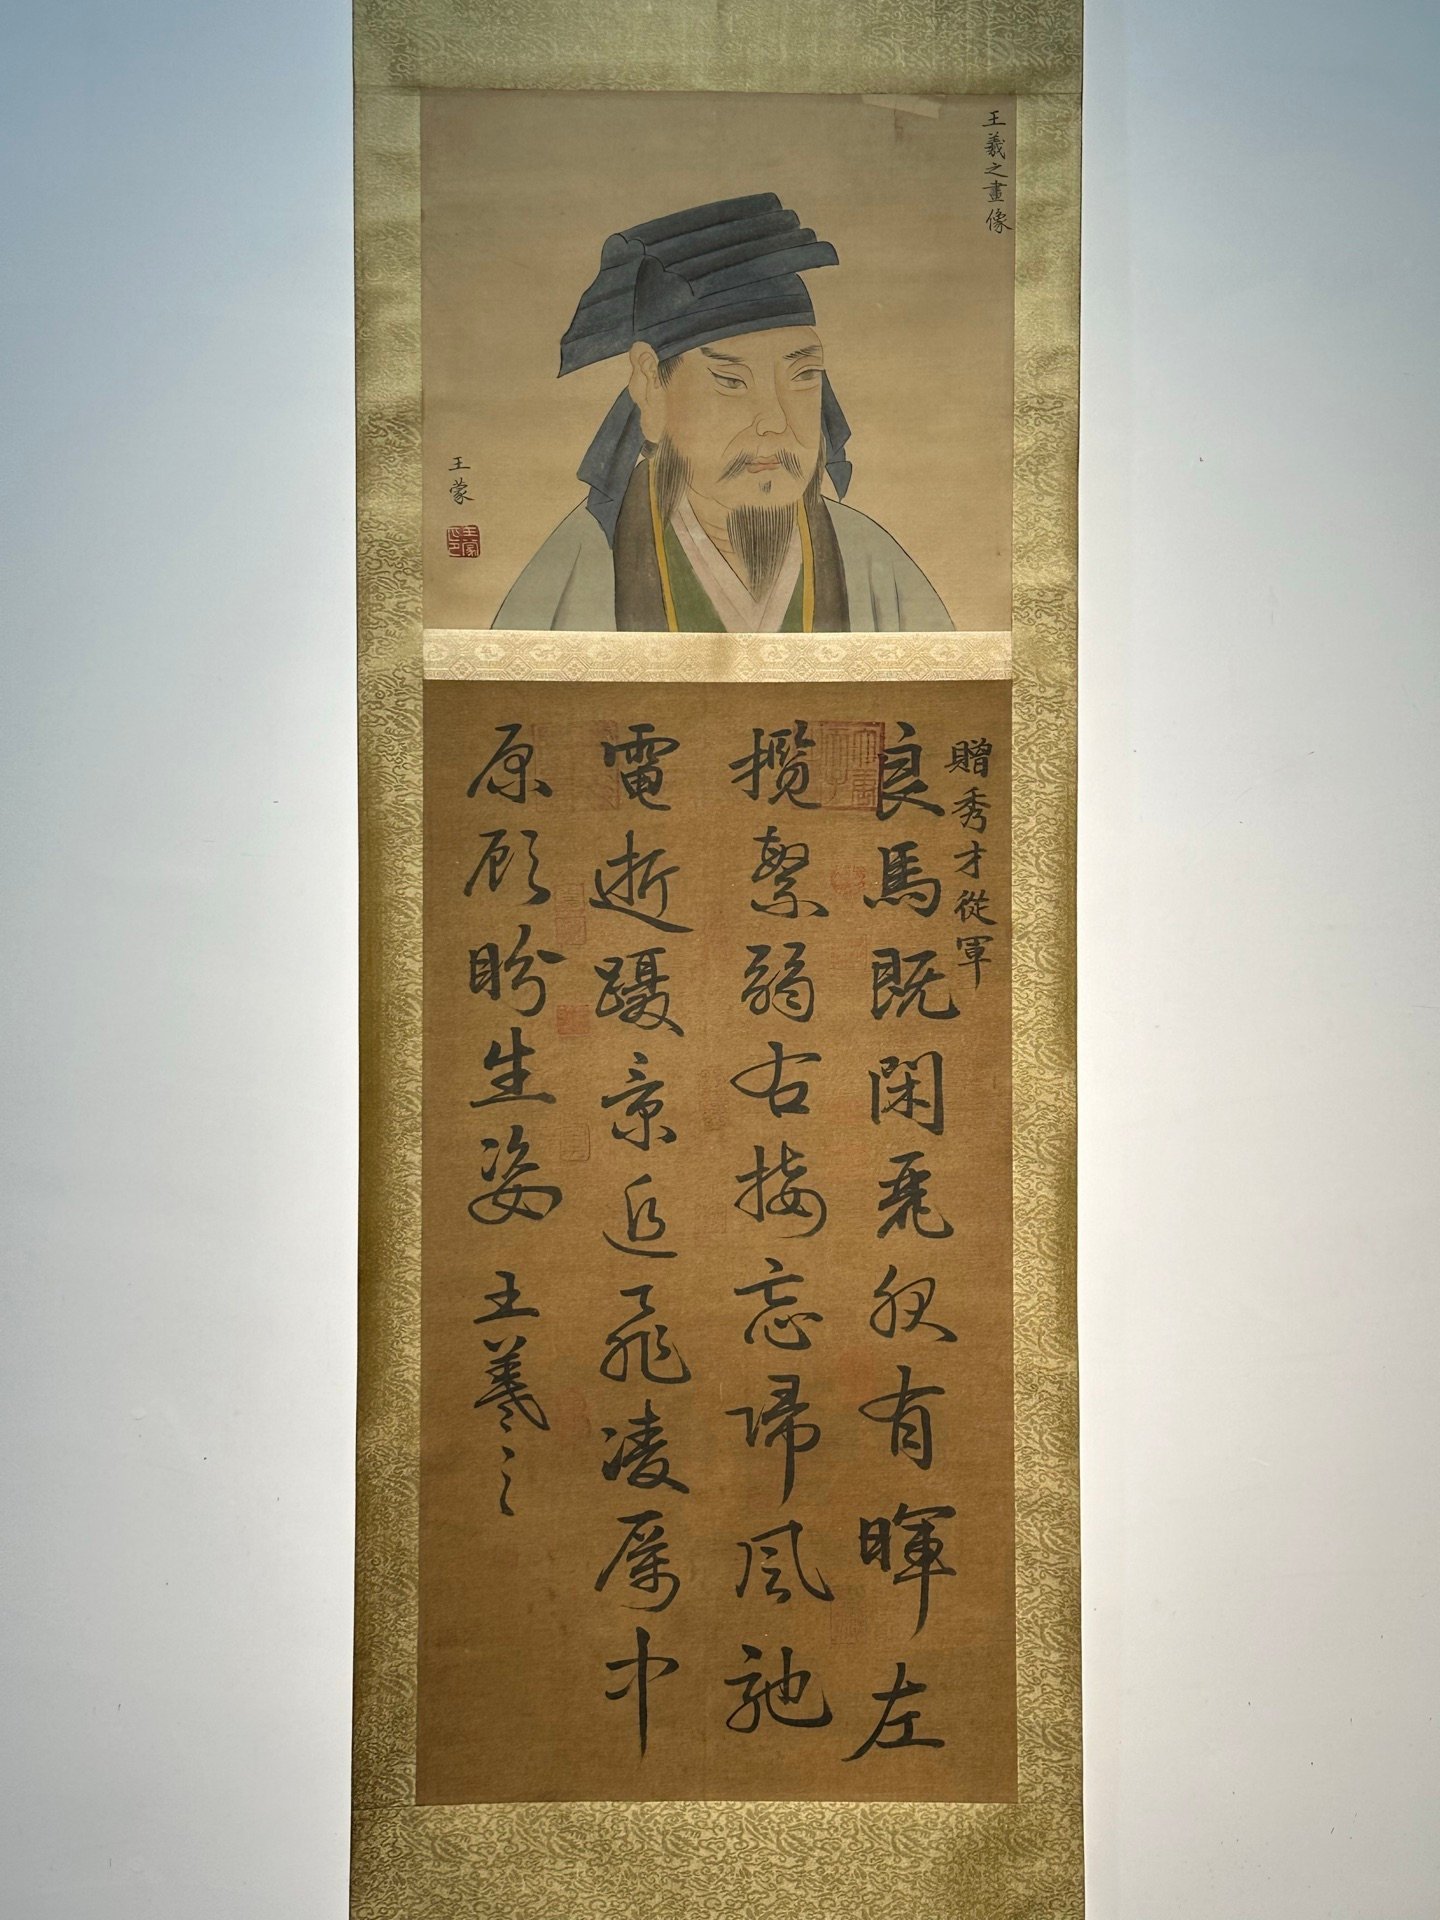 王羲之畫像
王蒙
王蒙之印
贈秀才從軍
良馬既閑麗服有暉左
攬繁弱右接忘歸風馳
電逝躡景追飛凌厲中
原顧盼生姿 王羲之